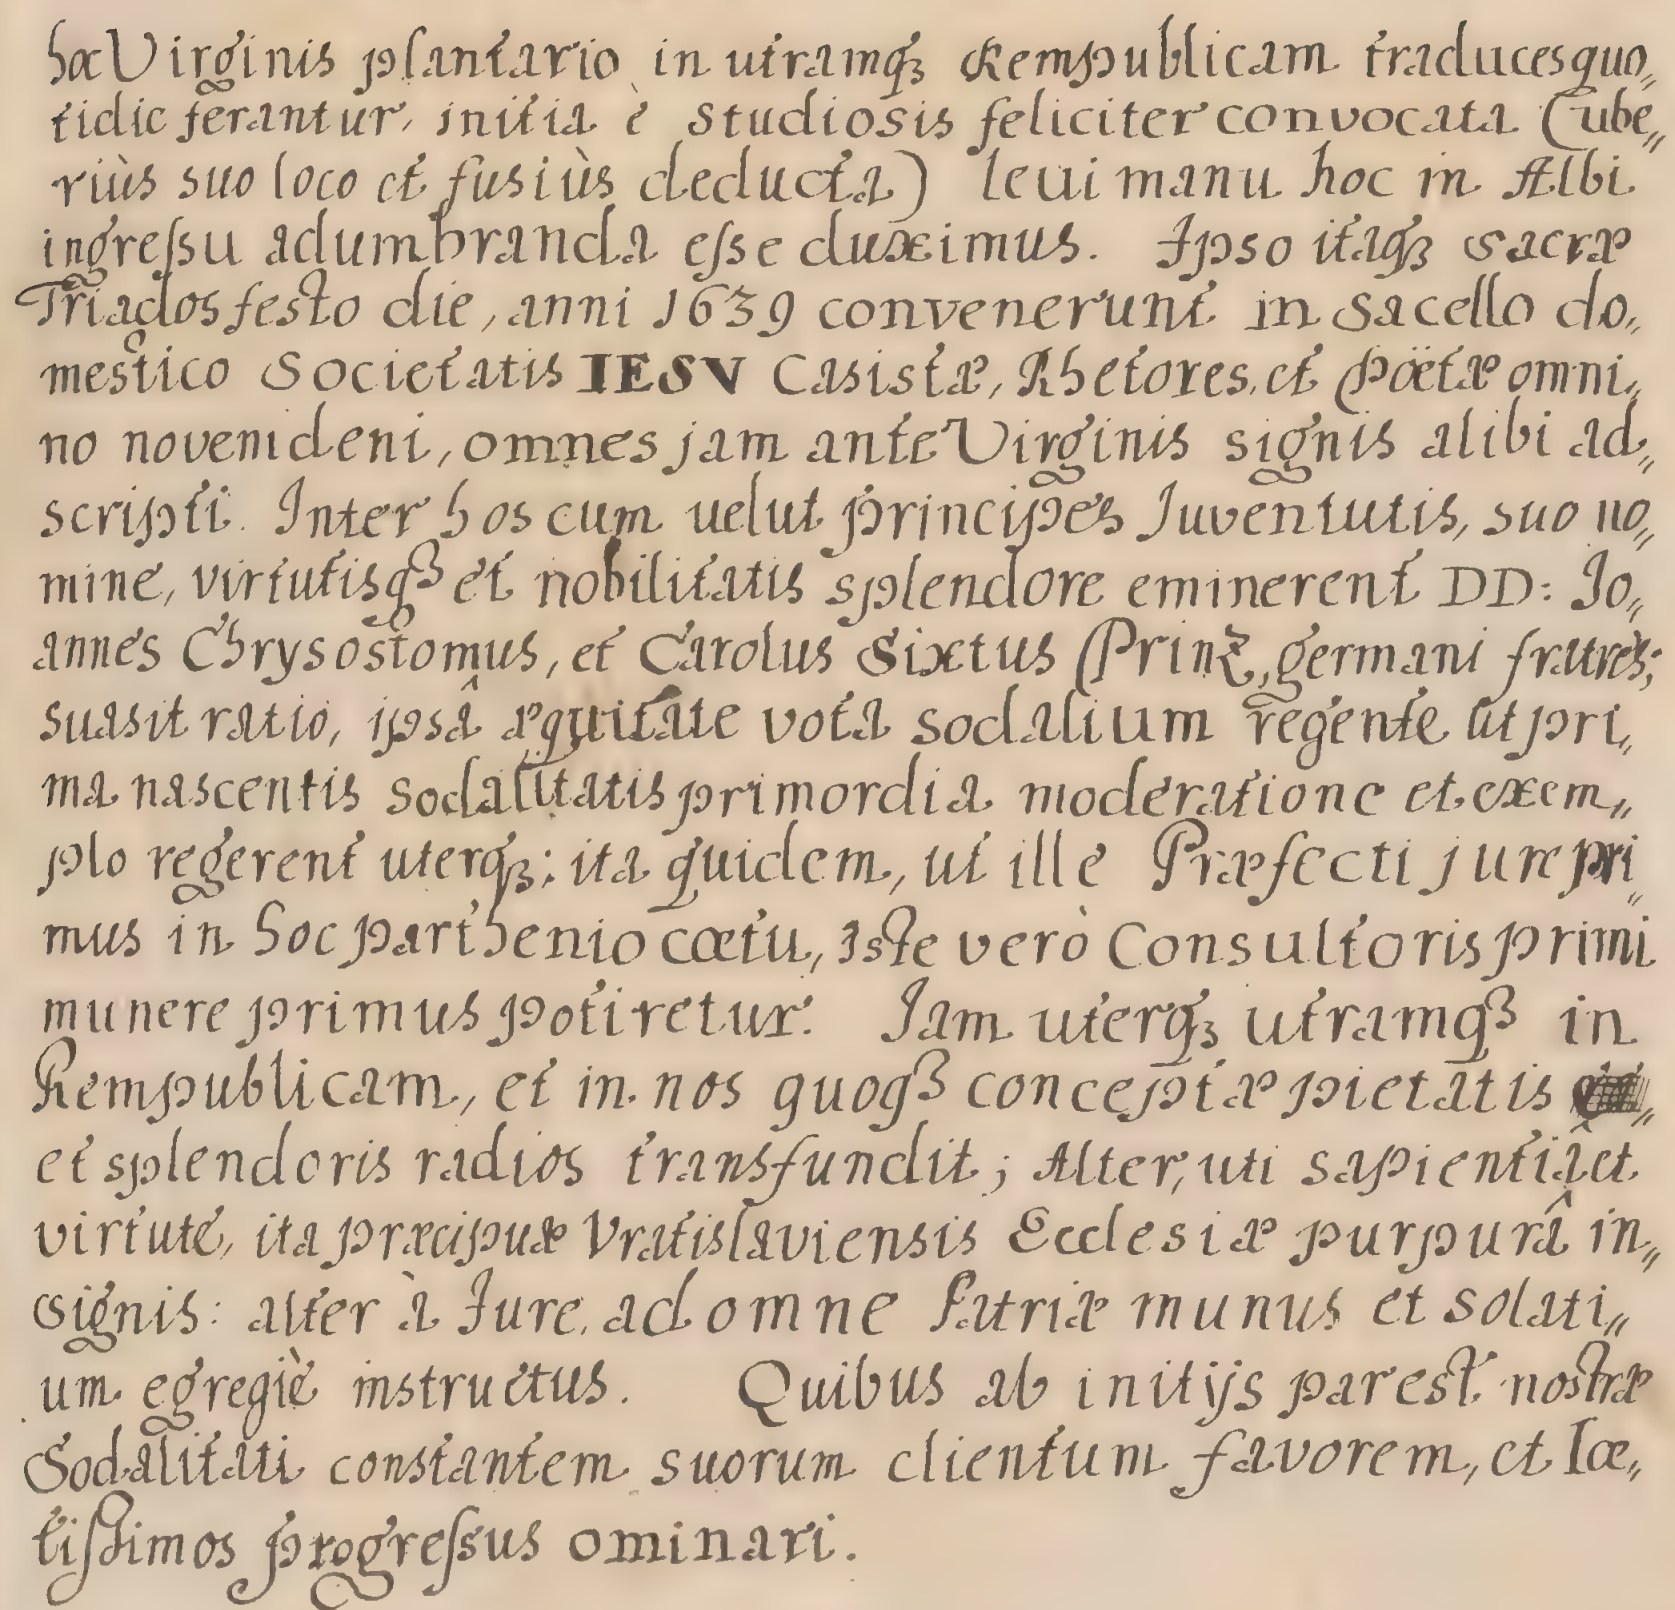 hoc Virginis plantario in utramqꝫ Rempublicam traduces quo„
tidie ferantur, initia è studiosis feliciter convocata (ube„
riùs suo loco et fusiùs deducta) leui manu hoc in Albi
ingreſsu adumbranda eſse duximus. Ipso itaqꝫ sacræ
Triados festo die, anni 1639 convenerunt in sacello do„
mestico Societatis IESV Casistæ, Rhetores, et Poëtæ omni„
no novenideni, omnes jam ante Virginis signis alibi ad„
scripti. Inter hos cum uelut principes Juventutis, suo no„
mine, virtutisqꝫ et nobilitatis splendore eminerent DD: Jo„
annes Chrysostomus, et Carolus Sixtus Prinz, germani fratres;
suasit ratio, ipsâ æquitate vota sodalium regente ut pri„
ma nascentis sodalitatis primordia moderatione et exem„
plo regerent uterqꝫ; ita quidem, ut ille Præfecti jure pri„
mus in hoc parthenio cœtu, iste verò Consultoris primi
munere primus potiretur. Jam uterqꝫ utramqꝫ in
Rempublicam, et in nos quoqꝫ conceptæ pietatis
et splendoris radios transfundit; Alter, uti sapientiâ et
virtute, ita præcipuæ Vratislaviensis Ecclesiæ purpurâ in„
signis: alter à Jure, ad omne Patriæ munus et solati„
um egregiè instructus. Quibus ab initijs par est nostræ
Sodalitati constantem suorum clientum favorem, et læ„
tiſsimos progreſsus ominari.